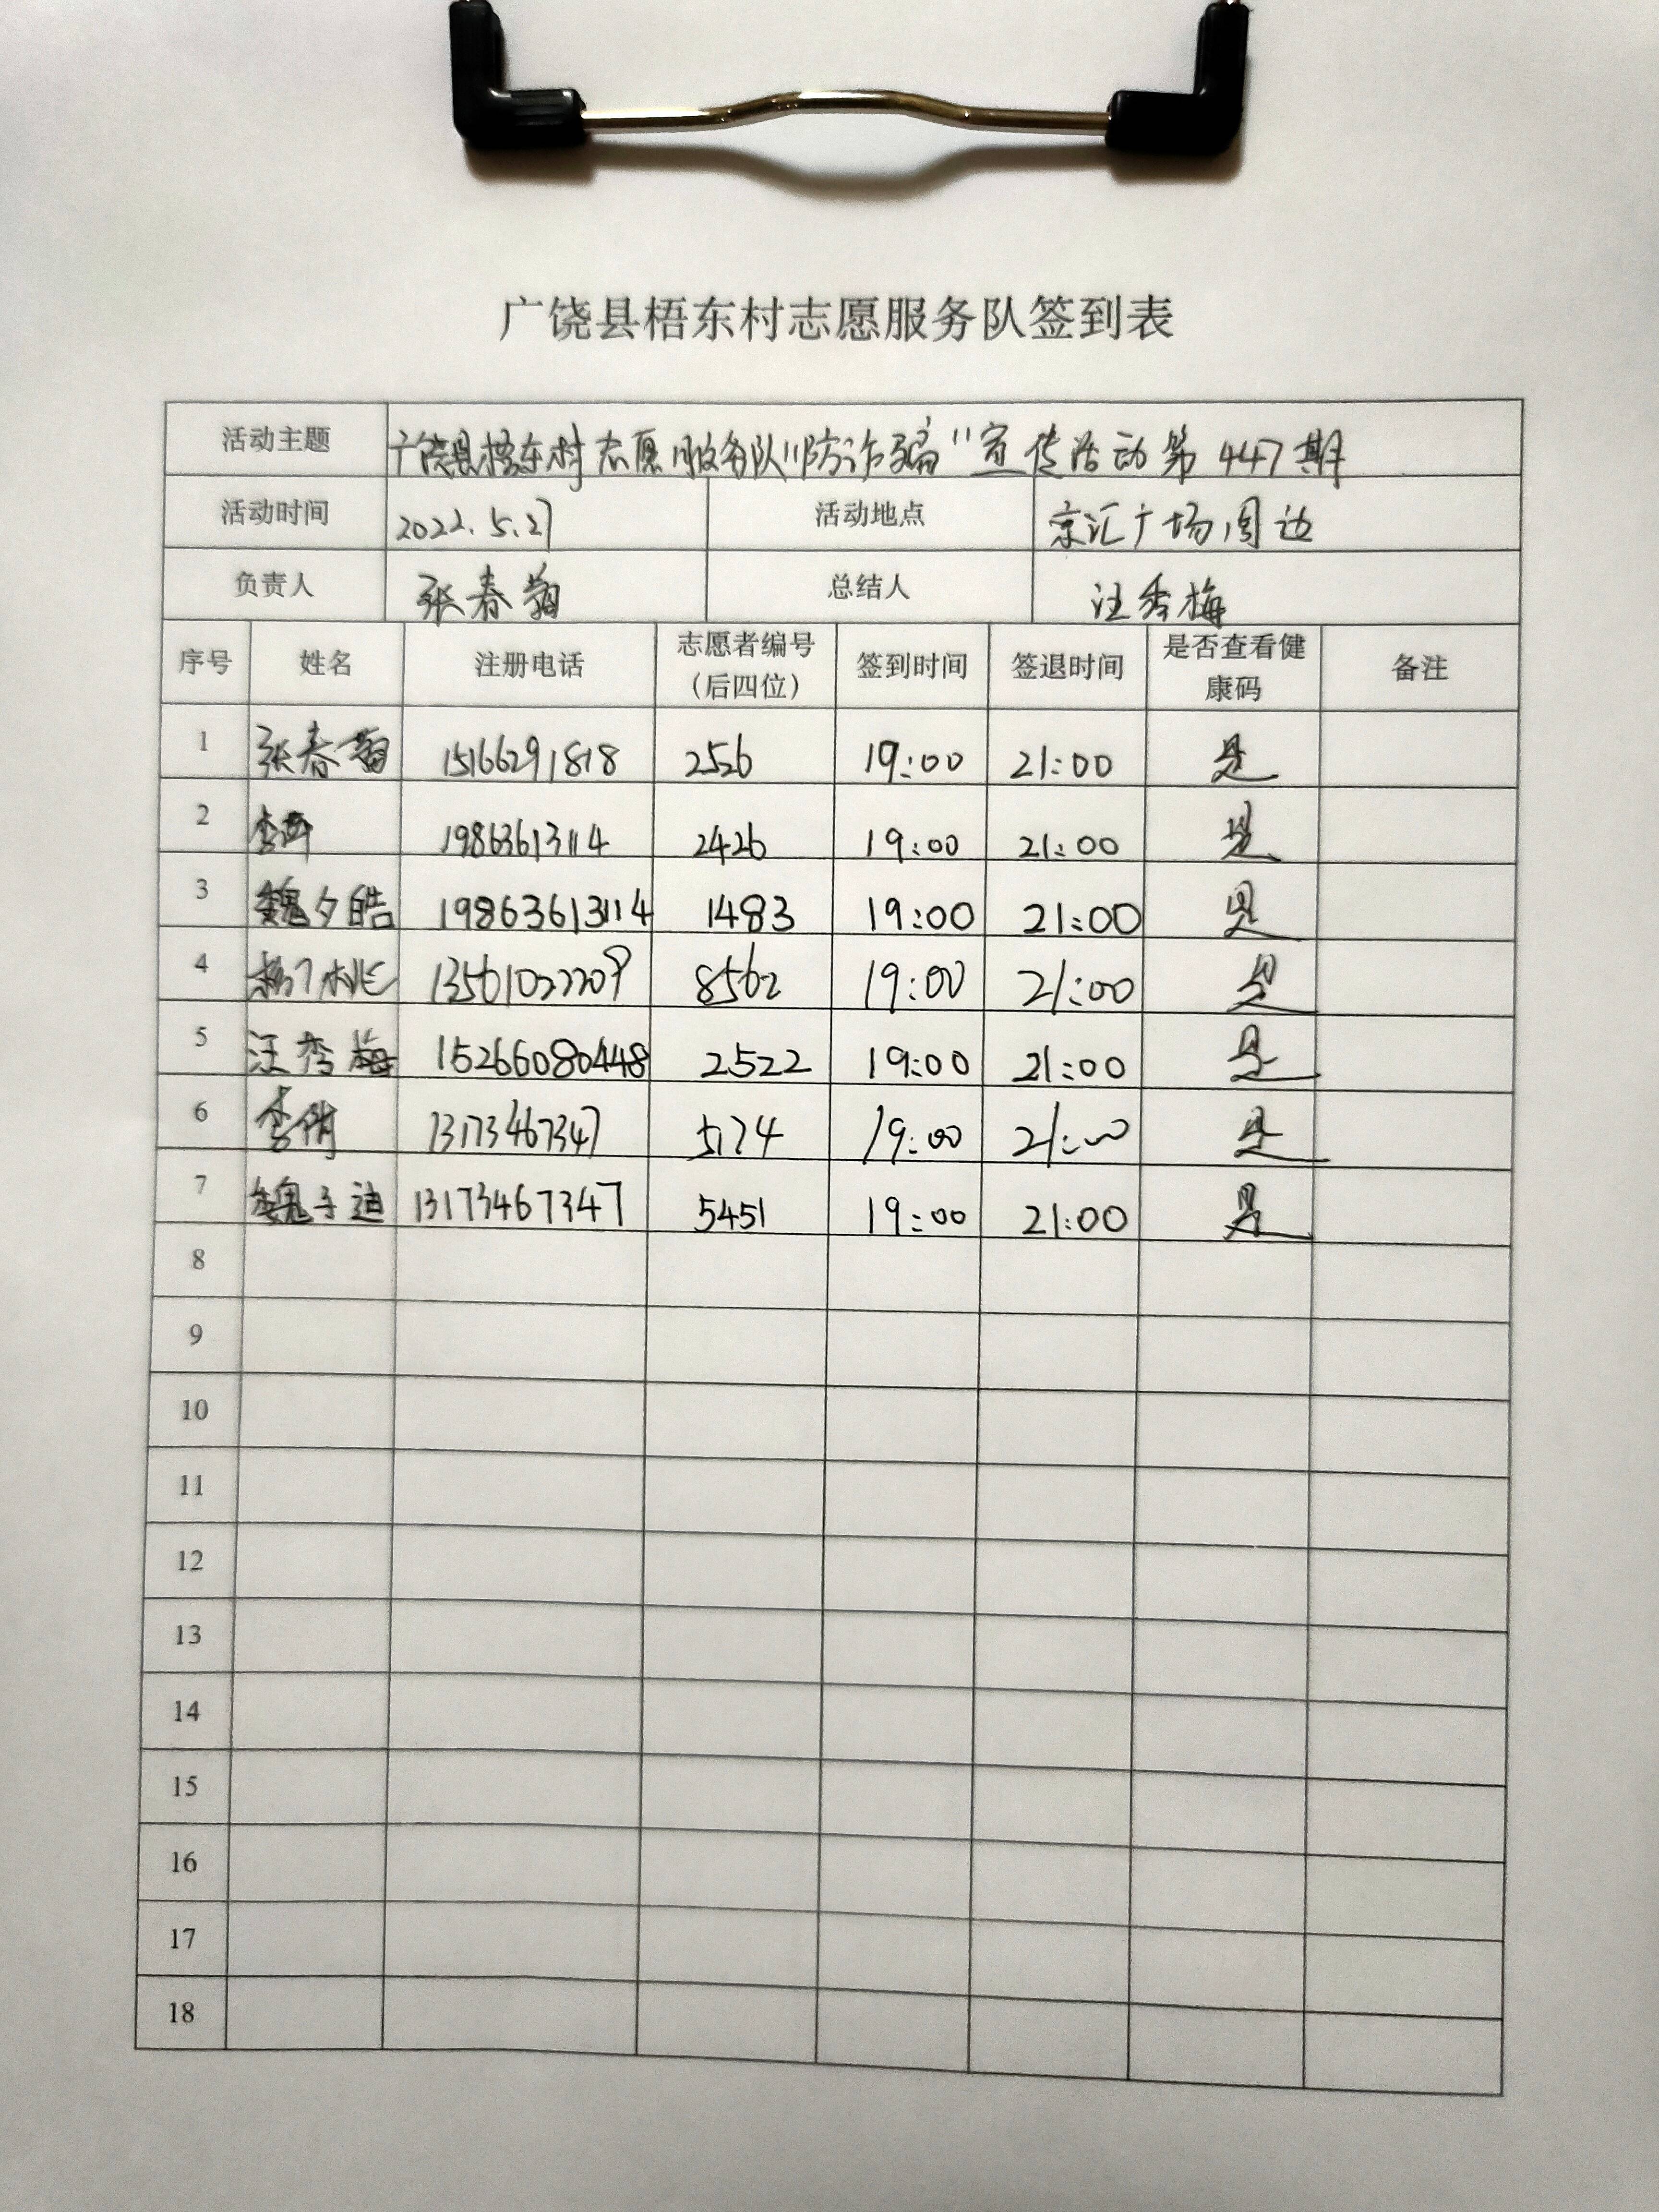 广饶县梧东村志愿服务队签到表
活动主题 广饶县梧东村志愿服务队"防诈骗"宣传活动第447期
活动时间 2022.5.27 活动地点 京汇广场周边
负责人 张春菊 总结人 汪秀梅
序号 姓名 注册电话 志愿者编号（后四位） 签到时间 签退时间 是否查看健康码 备注
1 张春菊 15166291818 2526 19:00 21:00 是
2 19863613114 2426 19:00 21:00 是
3 魏夕皓 19863613114 1483 19:00 21:00 是
4 13561022209 8562 19:00 21:00 是
5 汪秀梅 15266080448 2522 19:00 21:00 是
6 李倩 13173467347 5174 19:00 21:00 是
7 魏子迪 13173467347 5451 19:00 21:00 是
8
9
10
11
12
13
14
15
16
17
18